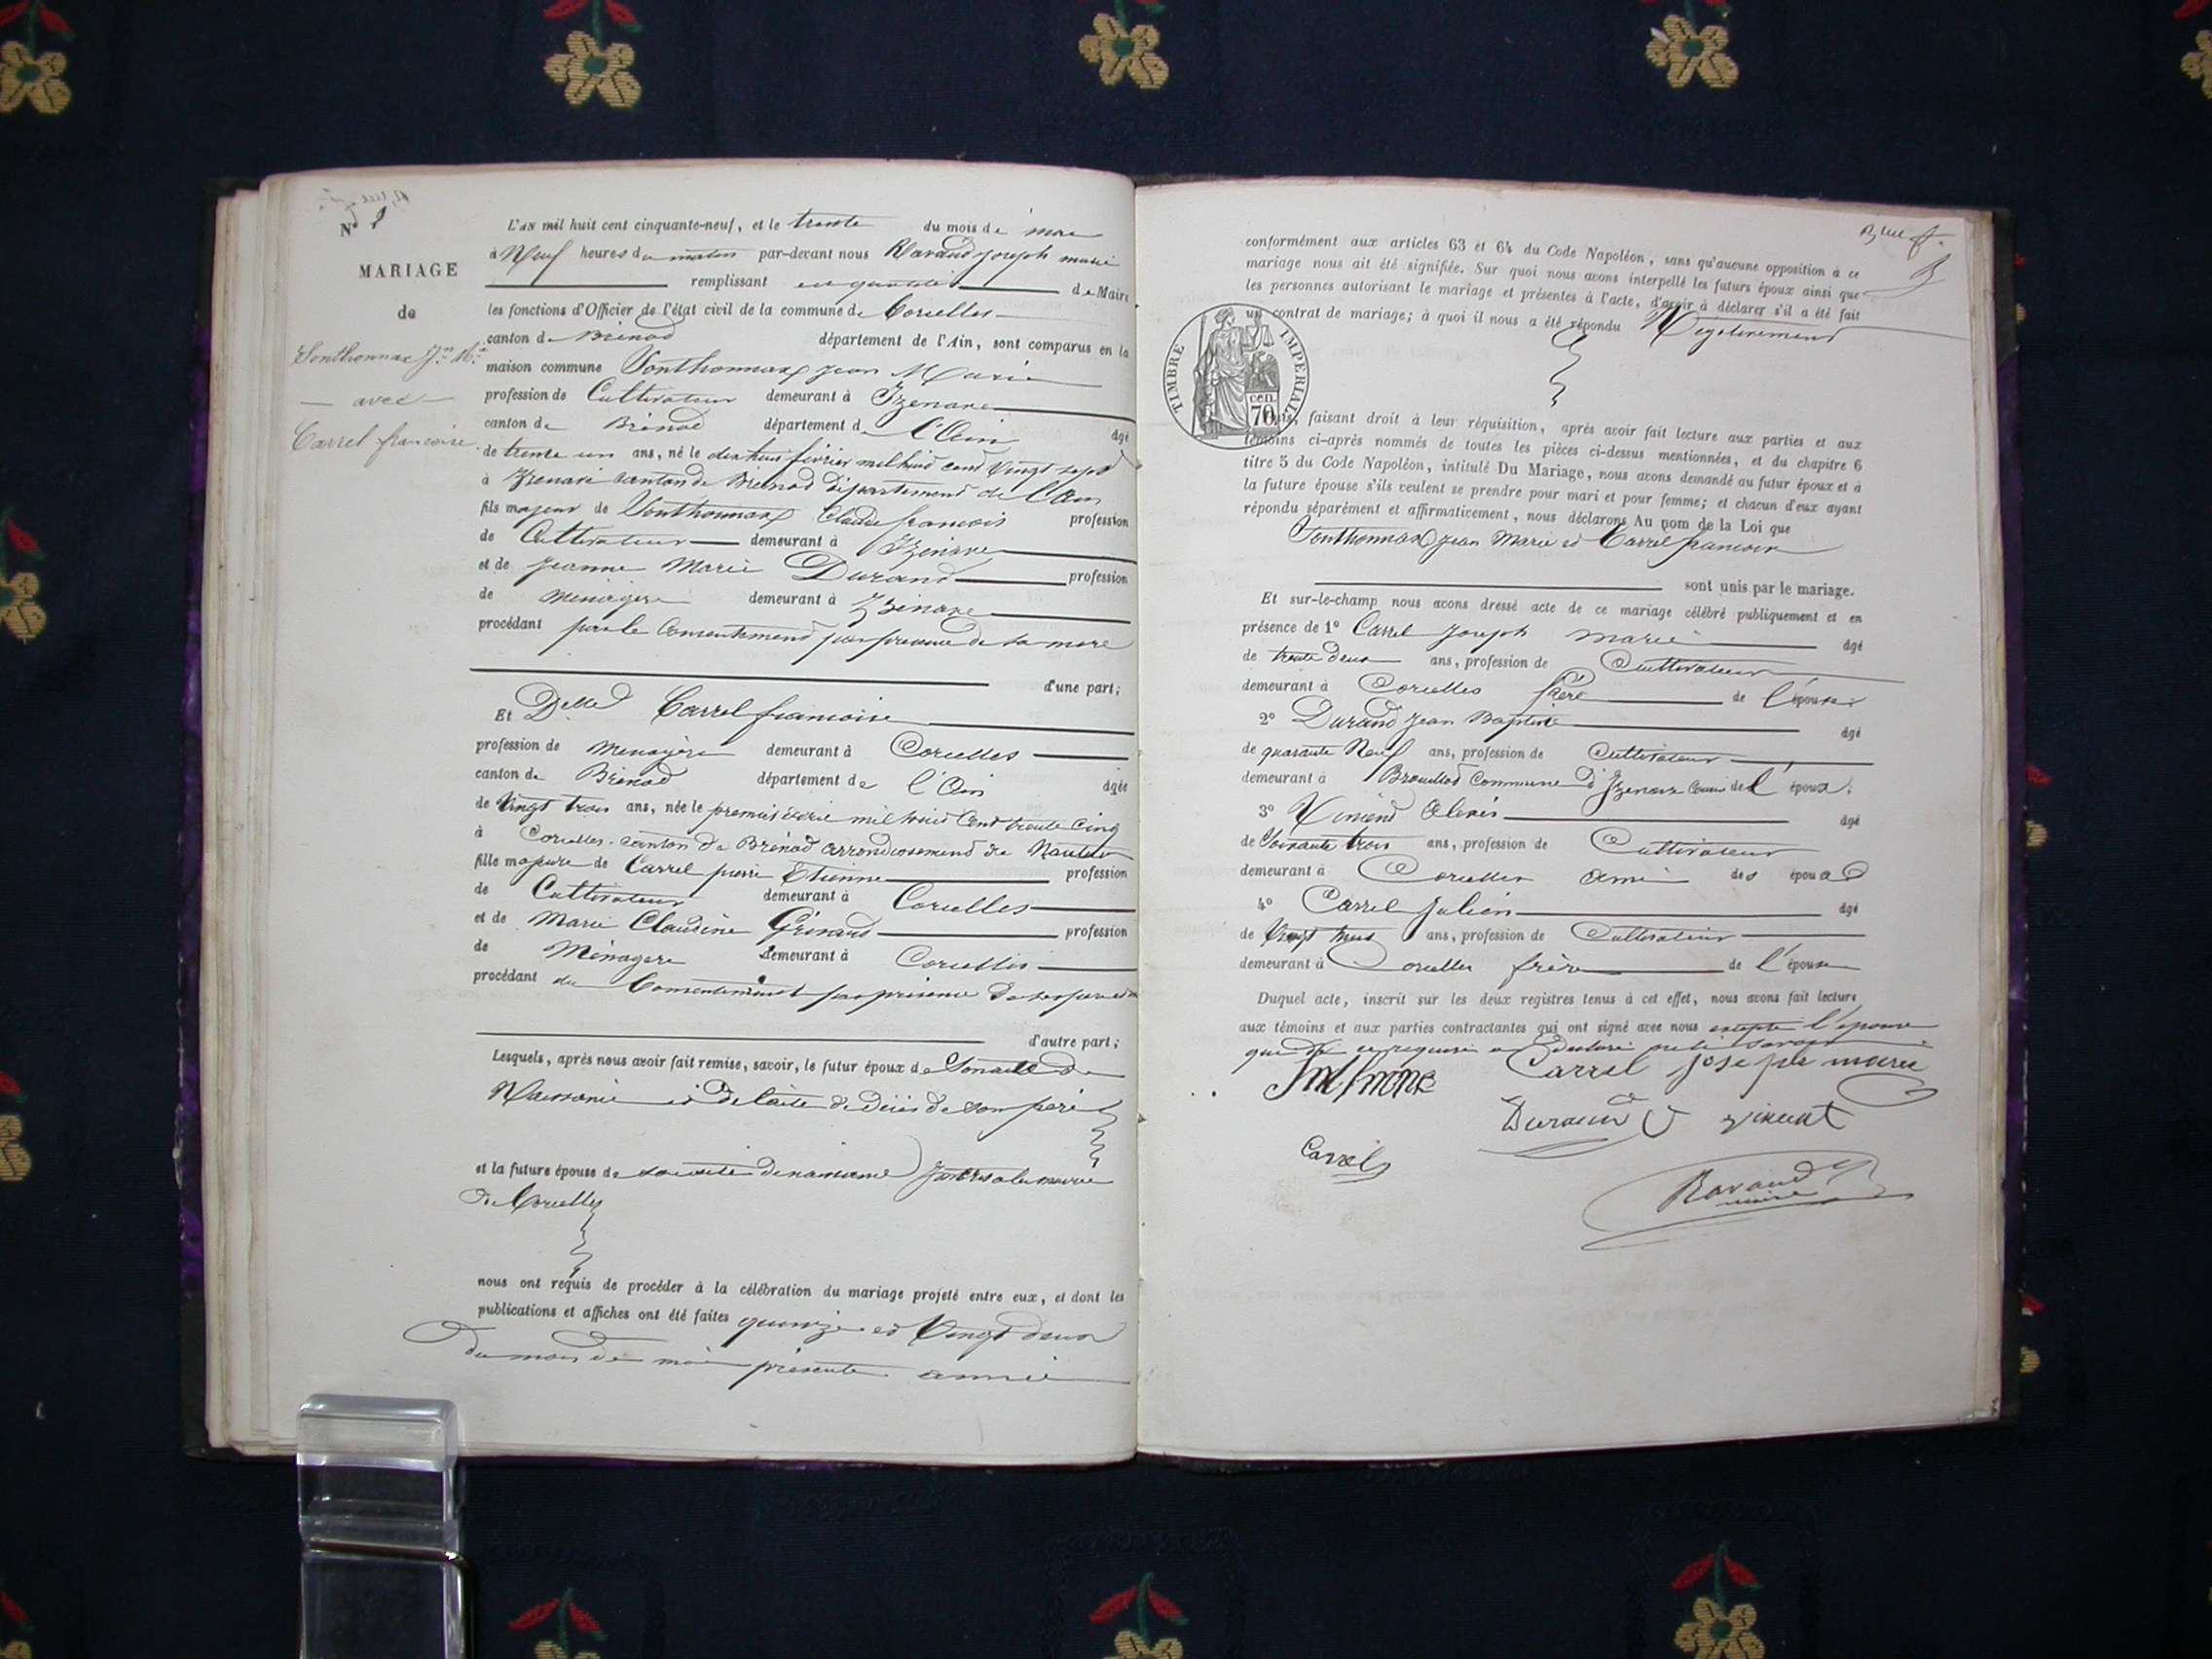 N° 2
MARIAGE
de
Sonthonnax Jn. Me.
— avec —
Carrel françoise
L'AN mil huit cent cinquante-neuf, et le trente du mois de mai
à Neuf heures du matin par-devant nous Ravaud joseph marie
remplissant en qualité de Maire
les fonctions d'Officier de l'état civil de la commune de Corcelles
canton de Brénod département de l'Ain, sont comparus en la
maison commune Sonthonnax jean Marie
profession de Cultivateur demeurant à Izenave
canton de Brénod département de l'Ain âgé
de trente un ans, né le dix huit février mil huit cent Vingt sept
à Izenave canton de Brénod département de l'Ain
fils majeur de Sonthonnax Claude françois profession
de Cultivateur demeurant à Izenave
et de Jeanne Marie Durand profession
de ménagère demeurant à Izenave
procédant par le Consentement par presence de sa mere
d'une part;
Et Delle Carrel francoise
profession de menagère demeurant à Corcelles
canton de Brénod département de l'Ain âgée
de Vingt trois ans, née le premier mil huit Cent trente Cinq
à Corcelles canton de Brénod arrondissement de Nantua
fille majeure de Carrel pierre Etienne profession
de Cultivateur demeurant à Corcelles
et de Marie Claudine profession
de Ménagere demeurant à Corcelles
procédant du Consentement par présence de ses pere et m
d'autre part;
Lesquels, après nous avoir fait remise, savoir, le futur époux de Son acte de
Naissance et de l'acte de décès de son père
et la future épouse de son acte de naissance
de Corcelles
nous ont requis de procéder à la célébration du mariage projeté entre eux, et dont les
publications et affiches ont été faites quinze et Vingt deux
du mois de mai présente année
conformément aux articles 63 et 64 du Code Napoléon, sans qu'aucune opposition à ce
mariage nous ait été signifiée. Sur quoi nous avons interpellé les futurs époux ainsi que
les personnes autorisant le mariage et présentes à l'acte, d'avoir à déclarer s'il a été fait
un contrat de mariage; à quoi il nous a été répondu Négativement
TIMBRE IMPERIAL
cen.
70
Puis, faisant droit à leur réquisition, après avoir fait lecture aux parties et aux
témoins ci-après nommés de toutes les pièces ci-dessus mentionnées, et du chapitre 6
titre 5 du Code Napoléon, intitulé Du Mariage, nous avons demandé au futur époux et à
la future épouse s'ils veulent se prendre pour mari et pour femme; et chacun d'eux ayant
répondu séparément et affirmativement, nous déclarons Au nom de la Loi que
Sonthonnax jean Marie et Carrel francoise
sont unis par le mariage.
Et sur-le-champ nous avons dressé acte de ce mariage célébré publiquement et en
présence de 1° Carrel Joseph marie âgé
de trente deux ans, profession de Cultivateur
demeurant à Corcelles frère de l'épouse
2° Durand jean Baptiste âgé
de quarante Neuf ans, profession de Cultivateur
demeurant à Commune d'Izenave Cousin de l'époux;
3° Alexis âgé
de Soixante trois ans, profession de Cultivateur
demeurant à Corcelles ami des époux
4° Carrel Julien âgé
de Vingt ans, profession de Cultivateur
demeurant à Corcelles frère de l'épouse
Duquel acte, inscrit sur les deux registres tenus à cet effet, nous avons fait lecture
aux témoins et aux parties contractantes qui ont signé avec nous excepté l'épouse
que de ce requise a déclaré ne le savoir
Carrel joseph marie
Durand
Carrel
Ravaud
maire